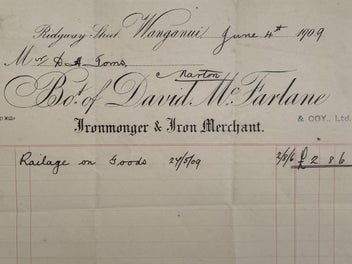 Ridgway Street Wanganui, June 4th 1909
Mr D A Toms,
Marton
Bot. of David McFarlane
& COY., Ltd.
Ironmonger & Iron Merchant.
Railage on Goods 27/5/09 3/8/6 £ 2 8 6